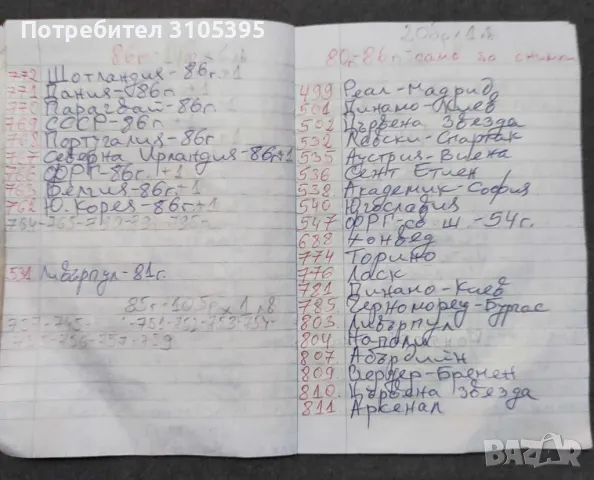 Потребител 3105395
86г.
772 Шотландия-86г.+1
771 Дания-86г.+1
770 Парагвай-86г.
769 СССР-86г.
768 Португалия-86г.
767 Северна Ирландия-86г+1
766 ФРГ-86г.+1
763 Белгия-86г.+1
762 Ю.Корея-86г+1
531 Ливърпул-81г.
85г-10бр х 1лв
20бр х 1лв
80-86г-само по снимки
499 Реал-Мадрид
501 Динамо-Киев
502 Цървена Звезда
532 Левски-Спартак
535 Аустрия-Виена
536 Сент Етиен
538 Академик-София
540 Югославия
547 ФРГ-св. ш.-54г.
688 Хонвед
774 Торино
776 Ласк
781 Динамо-Киев
785 Черноморец-Бургас
803 Ливърпул
804 Наполи
807 Абърдийн
809 Вердер-Бремен
810 Цървена Звезда
811 Арсенал
BAZAR